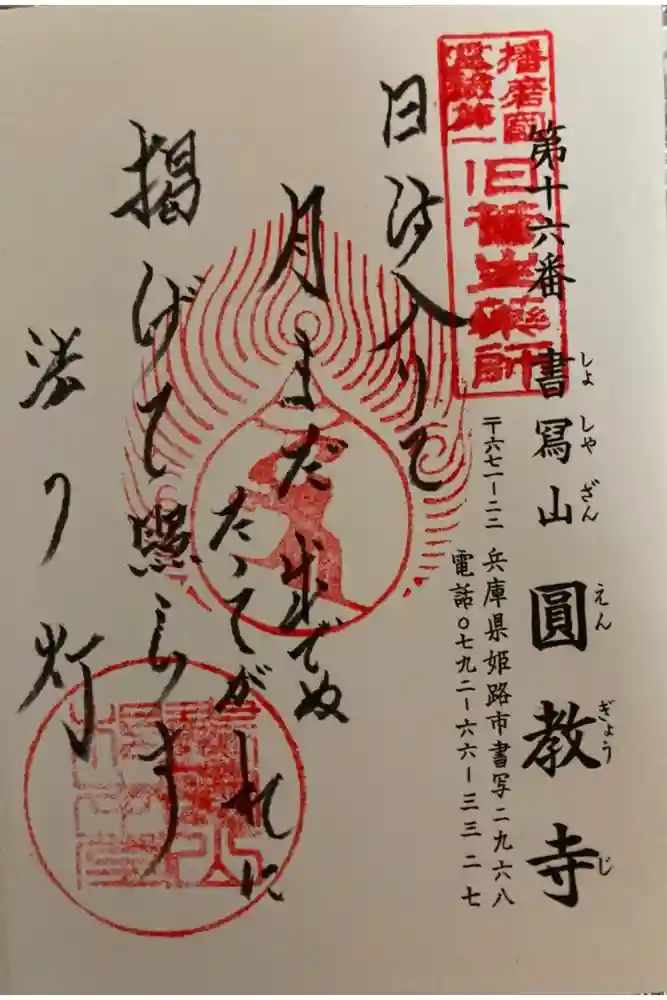 第十六番 書冩山 圓教寺
しよ しや ざん えん ぎょう じ
〒六七一ー二二 兵庫県姫路市書写二九六八
電話〇七九二ー六六ー三三二七
播磨國
第一
生薬師
日は入りて
月まだ出でぬ
たそがれに
掲げて照らす
法の灯